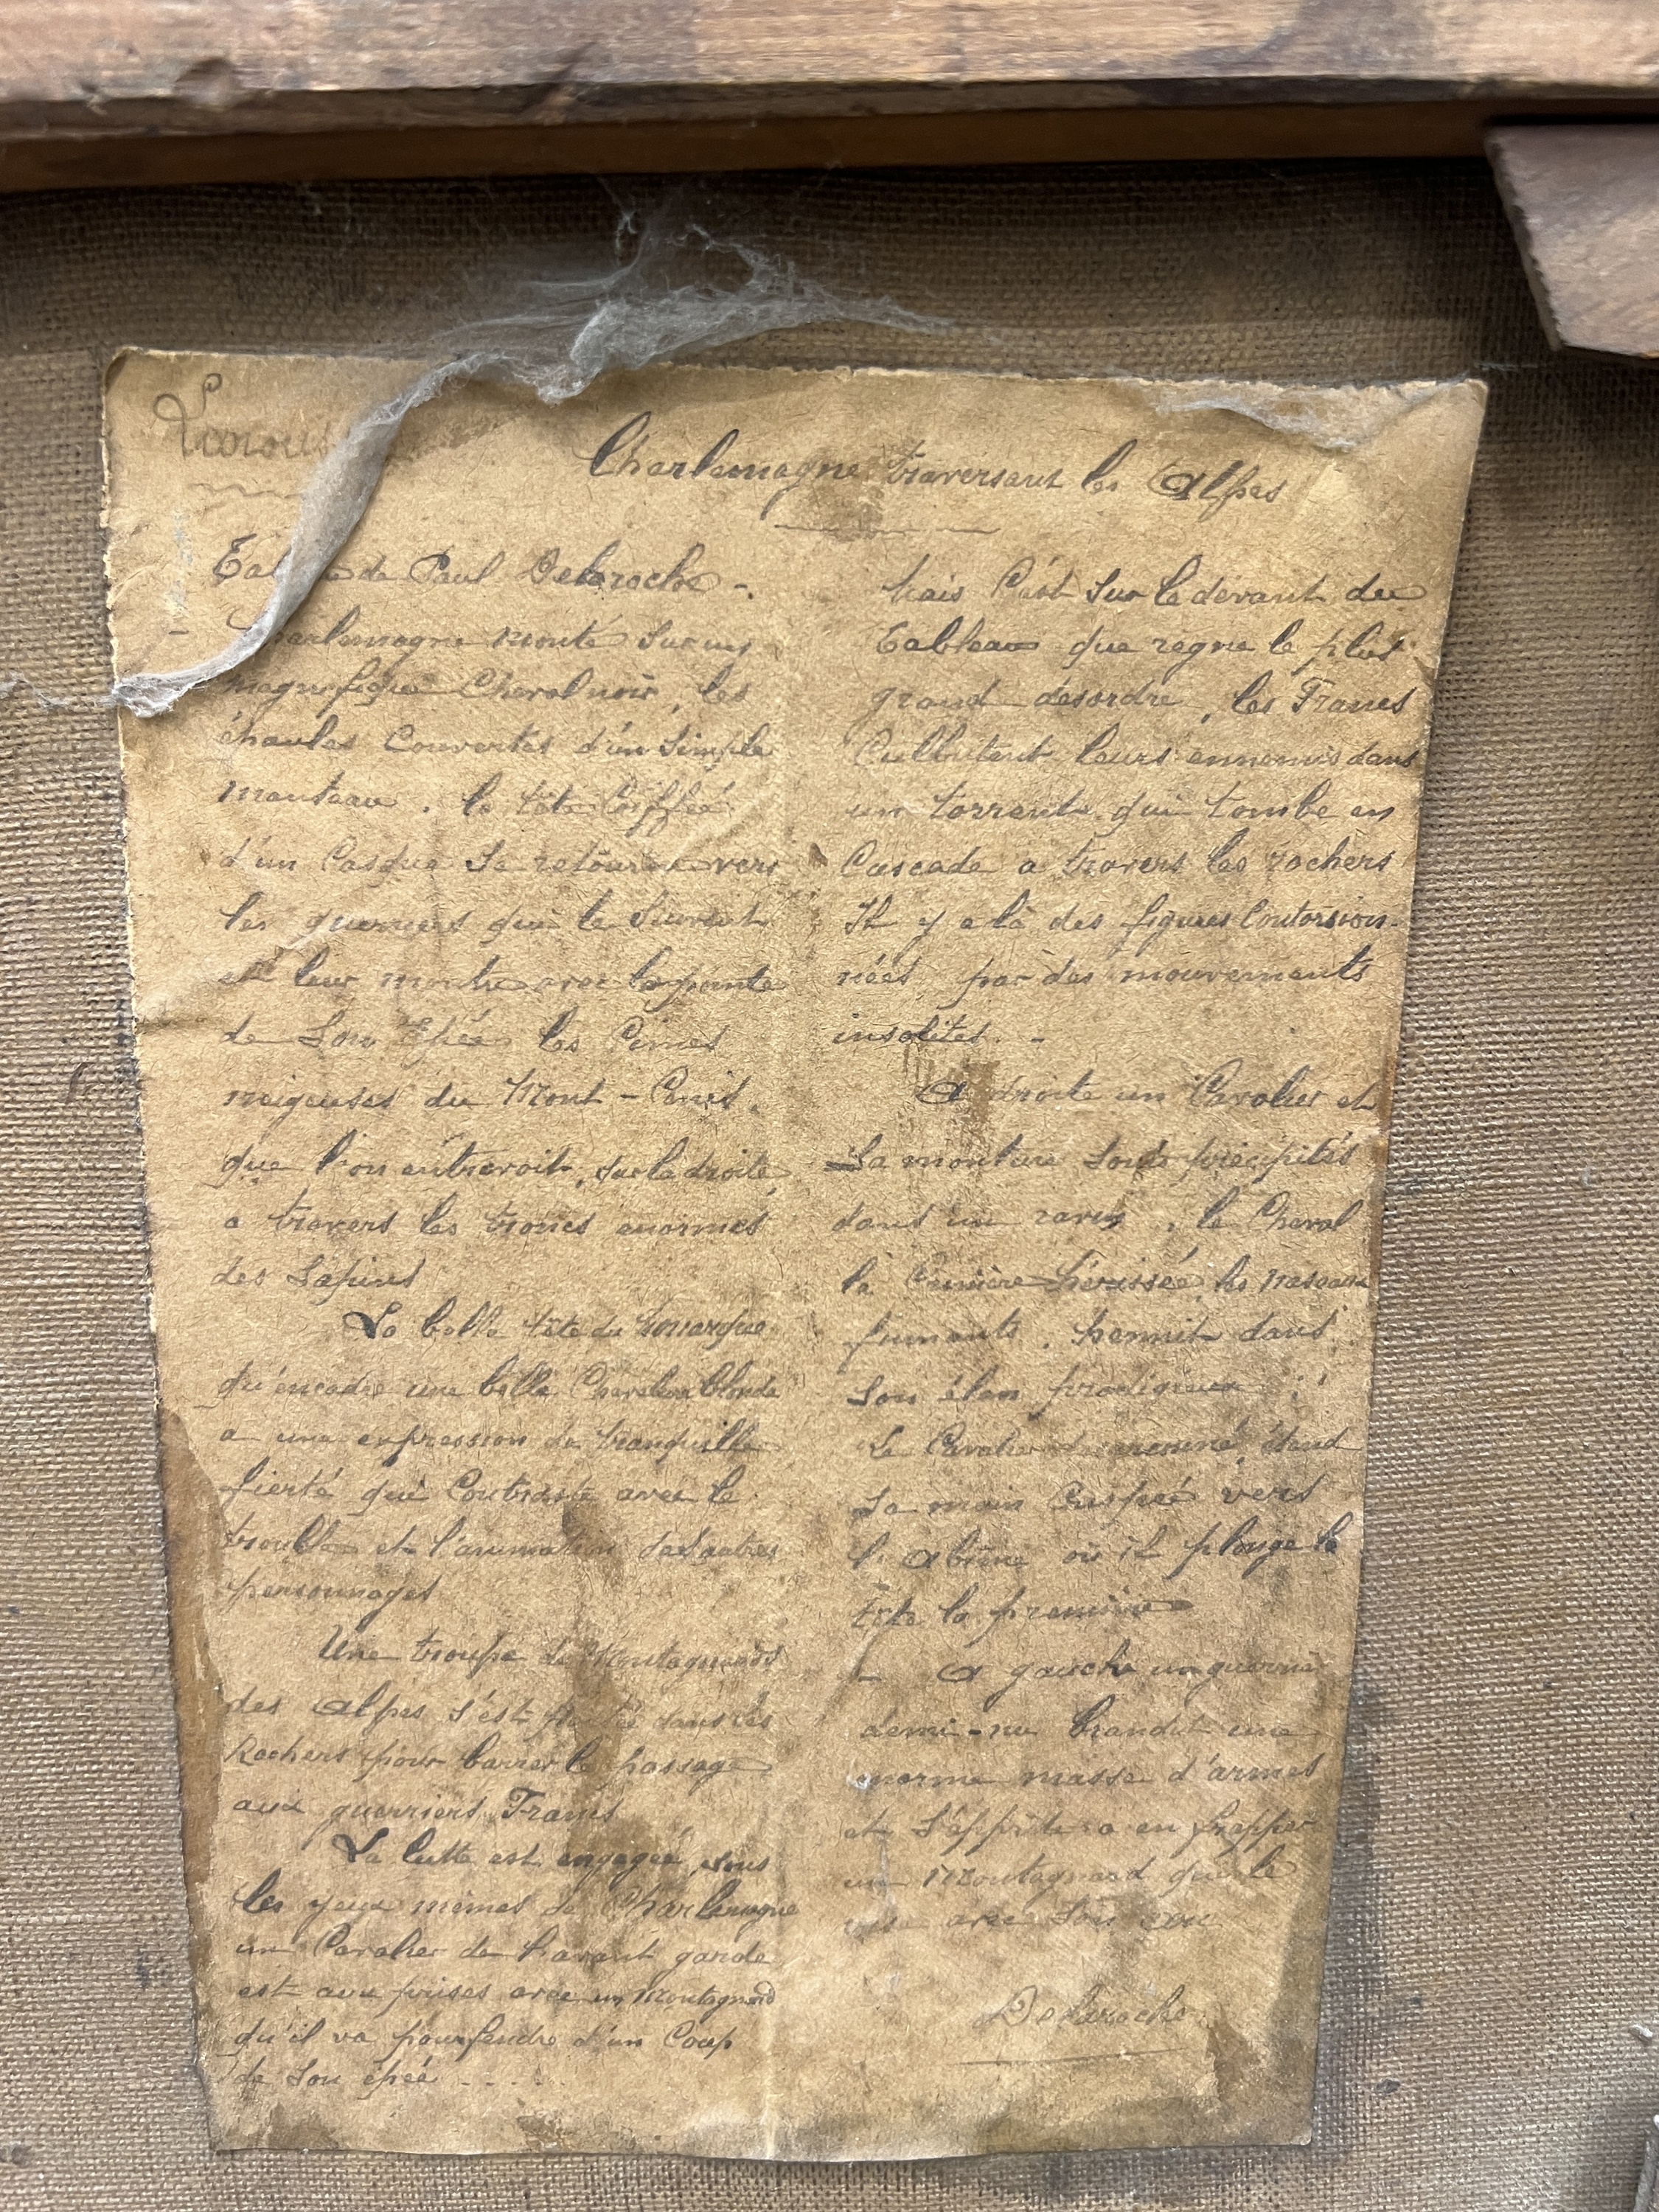 Charlemagne traversant les Alpes
de Paul Delaroche -
Charlemagne monté sur un
magnifique Cheval noir, les
épaules Couvertes d'un Simple
manteau. la tête Coiffée
d'un Casque Se retourne vers
les guerriers qui le Suivent
et leur montre avec la pointe
de Son Epée les Cimes
neigeuses du Mont-Cenis,
que l'on entrevoit, sur la droite
a travers les troncs enormes
des Sapins
La belle tête du Monarque
qu'encadre une belle Chevelure blonde
a une expression de tranquille
fierté qui Contraste avec le
trouble et l'animation des autres
personnages
Une troupe de Montagnards
des Alpes s'est postée dans les
Rochers pour barrer le passage
aux guerriers Francs
La lutte est engagée, sous
les yeux mêmes de Charlemagne
un Cavalier de l'avant garde
est aux prises avec un Montagnard
qu'il va pourfendre d'un Coup
de Son épée ....
Mais C'est Sur le devant du
Tableau que regne le plus
grand desordre, les Francs
Culbutent leurs ennemis dans
un torrent qui tombe en
Cascade a travers les rochers
Il y a là des figures Contorsion-
nées par des mouvements
insolites. -
A droite un Cavalier et
Sa monture Sont précipités
dans un ravin, le Cheval
la Crinière hérissée, les naseaux
fumants, hennit dans
Son élan prodigieux
Le Cavalier étend
Sa main Crispée vers
l'Abîme où il plonge la
tête la première
- A gauche un guerrier
demi-nu brandit une
enorme masse d'armes
et S'apprête a en frapper
un Montagnard qui le
vise avec Son arc
Delaroche